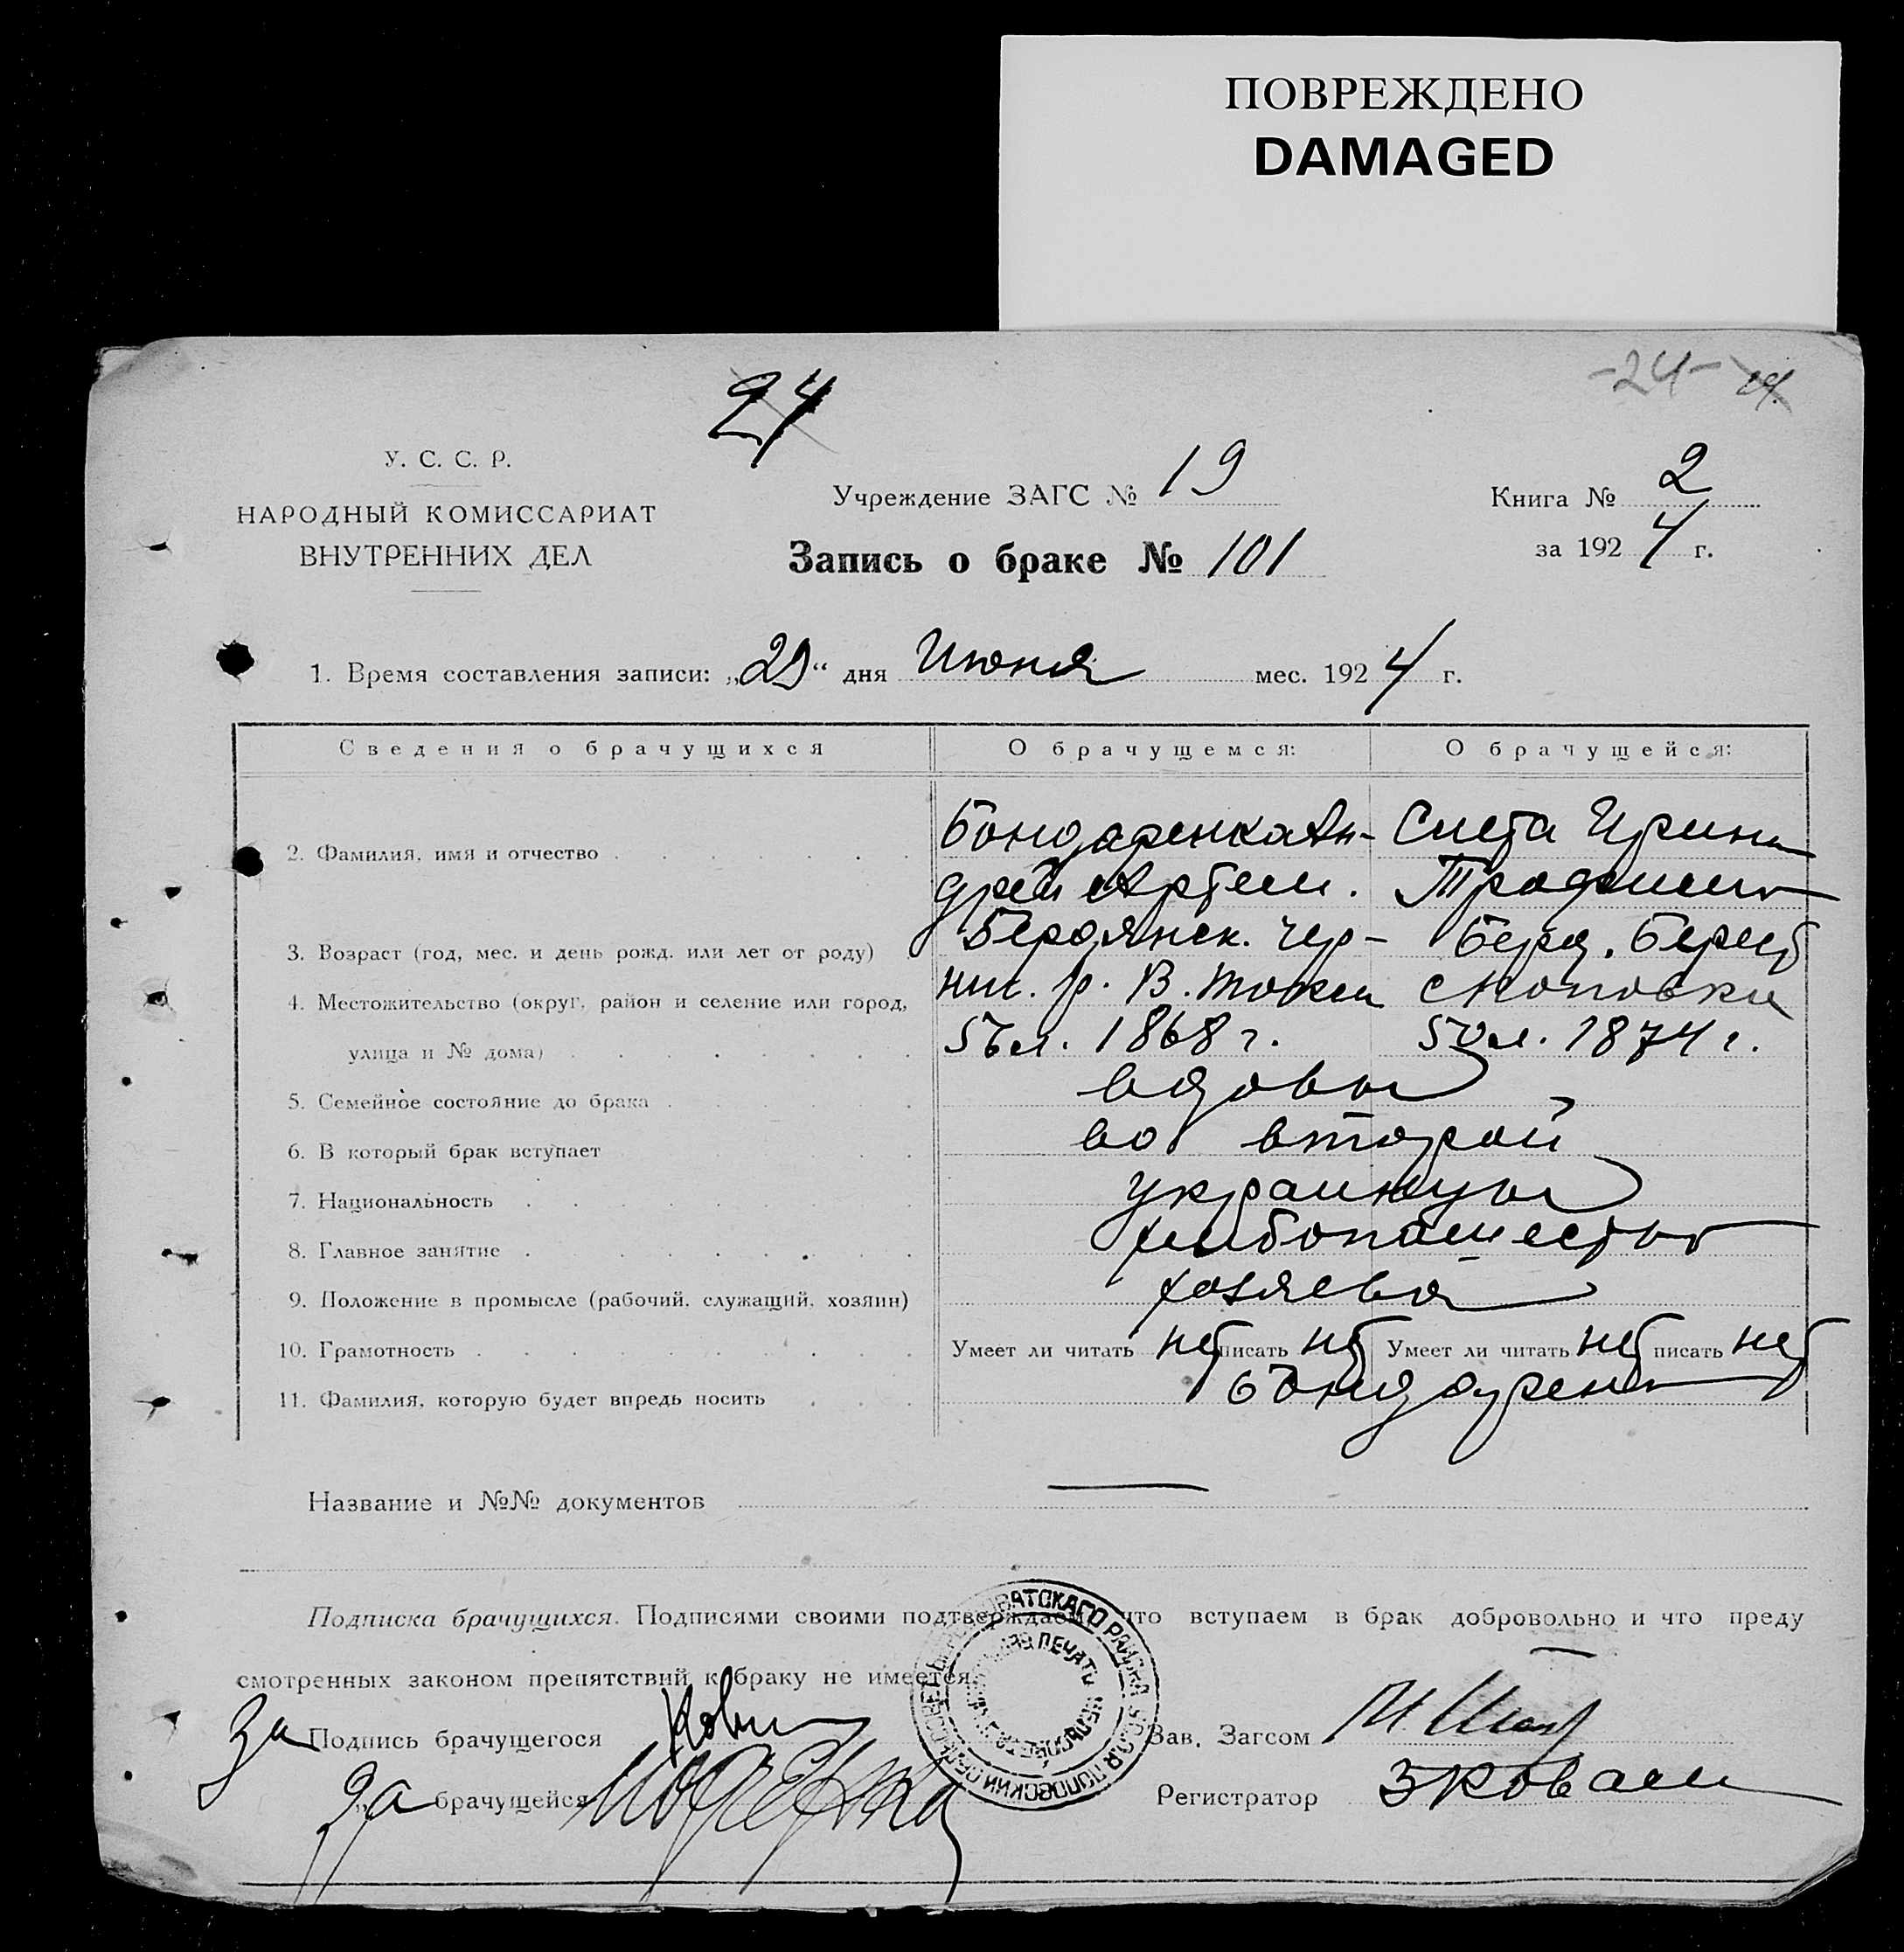 ПОВРЕЖДЕНО
DAMAGED
-24-
24
У. С. С. Р.
НАРОДНЫЙ КОМИССАРИАТ
ВНУТРЕННИХ ДЕЛ
Учреждение ЗАГС № 19
Запись о браке № 101
Книга № 2
за 1924 г.
1. Время составления записи: „29“ дня Июня мес. 1924 г.
Сведения о брачущихся О брачущемся: О брачущейся:
2. Фамилия, имя и отчество Бондаренка Ан- Ирина
дрей Артем.
3. Возраст (год, мес. и день рожд. или лет от роду) Бердянск. Чер- Берд.
4. Местожительство (округ, район и селение или город, ниг. р. В. Токмак
улица и № дома) 56 л. 1868 г. 50 л. 1874 г.
5. Семейное состояние до брака вдовы
6. В который брак вступает во второй
7. Национальность украинцы
8. Главное занятие
9. Положение в промысле (рабочий, служащий, хозяин) хозяева
10. Грамотность Умеет ли читать нет писать нет Умеет ли читать нет писать нет
11. Фамилия, которую будет впредь носить Бондаренко
Название и №№ документов
Подписка брачущихся. Подписями своими подтверждаем, что вступаем в брак добровольно и что преду
смотренных законом препятствий к браку не имеется
За Подпись брачущегося
Зав. Загсом
За „ брачущейся
Регистратор